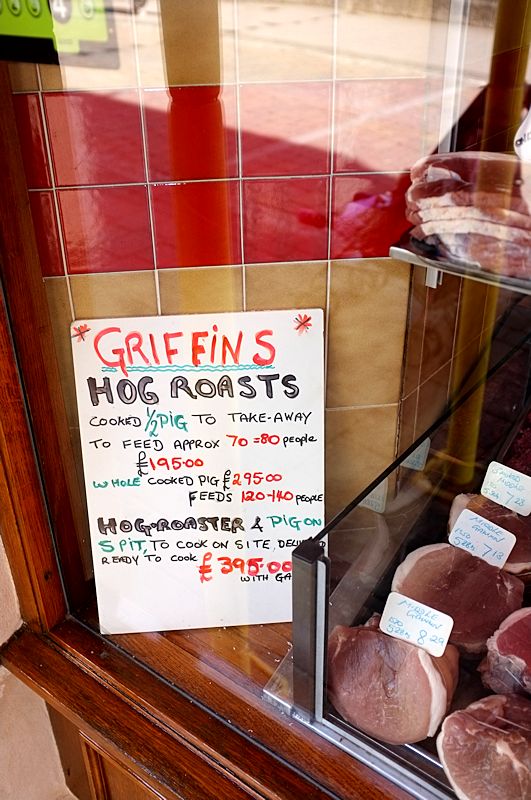 GRIFFINS
HOG ROASTS
COOKED 1/2 PIG TO TAKE-AWAY
TO FEED APPROX 70=80 people
£195.00
WHOLE COOKED PIG £295.00
FEEDS 120-140 PEOPLE
HOG-ROASTER & PIG ON
SPIT, TO COOK ON SITE,
READY TO COOK £395.00
WITH
MIDDLE
GAMMON
7.13
MIDDLE
GAMMON
8.29